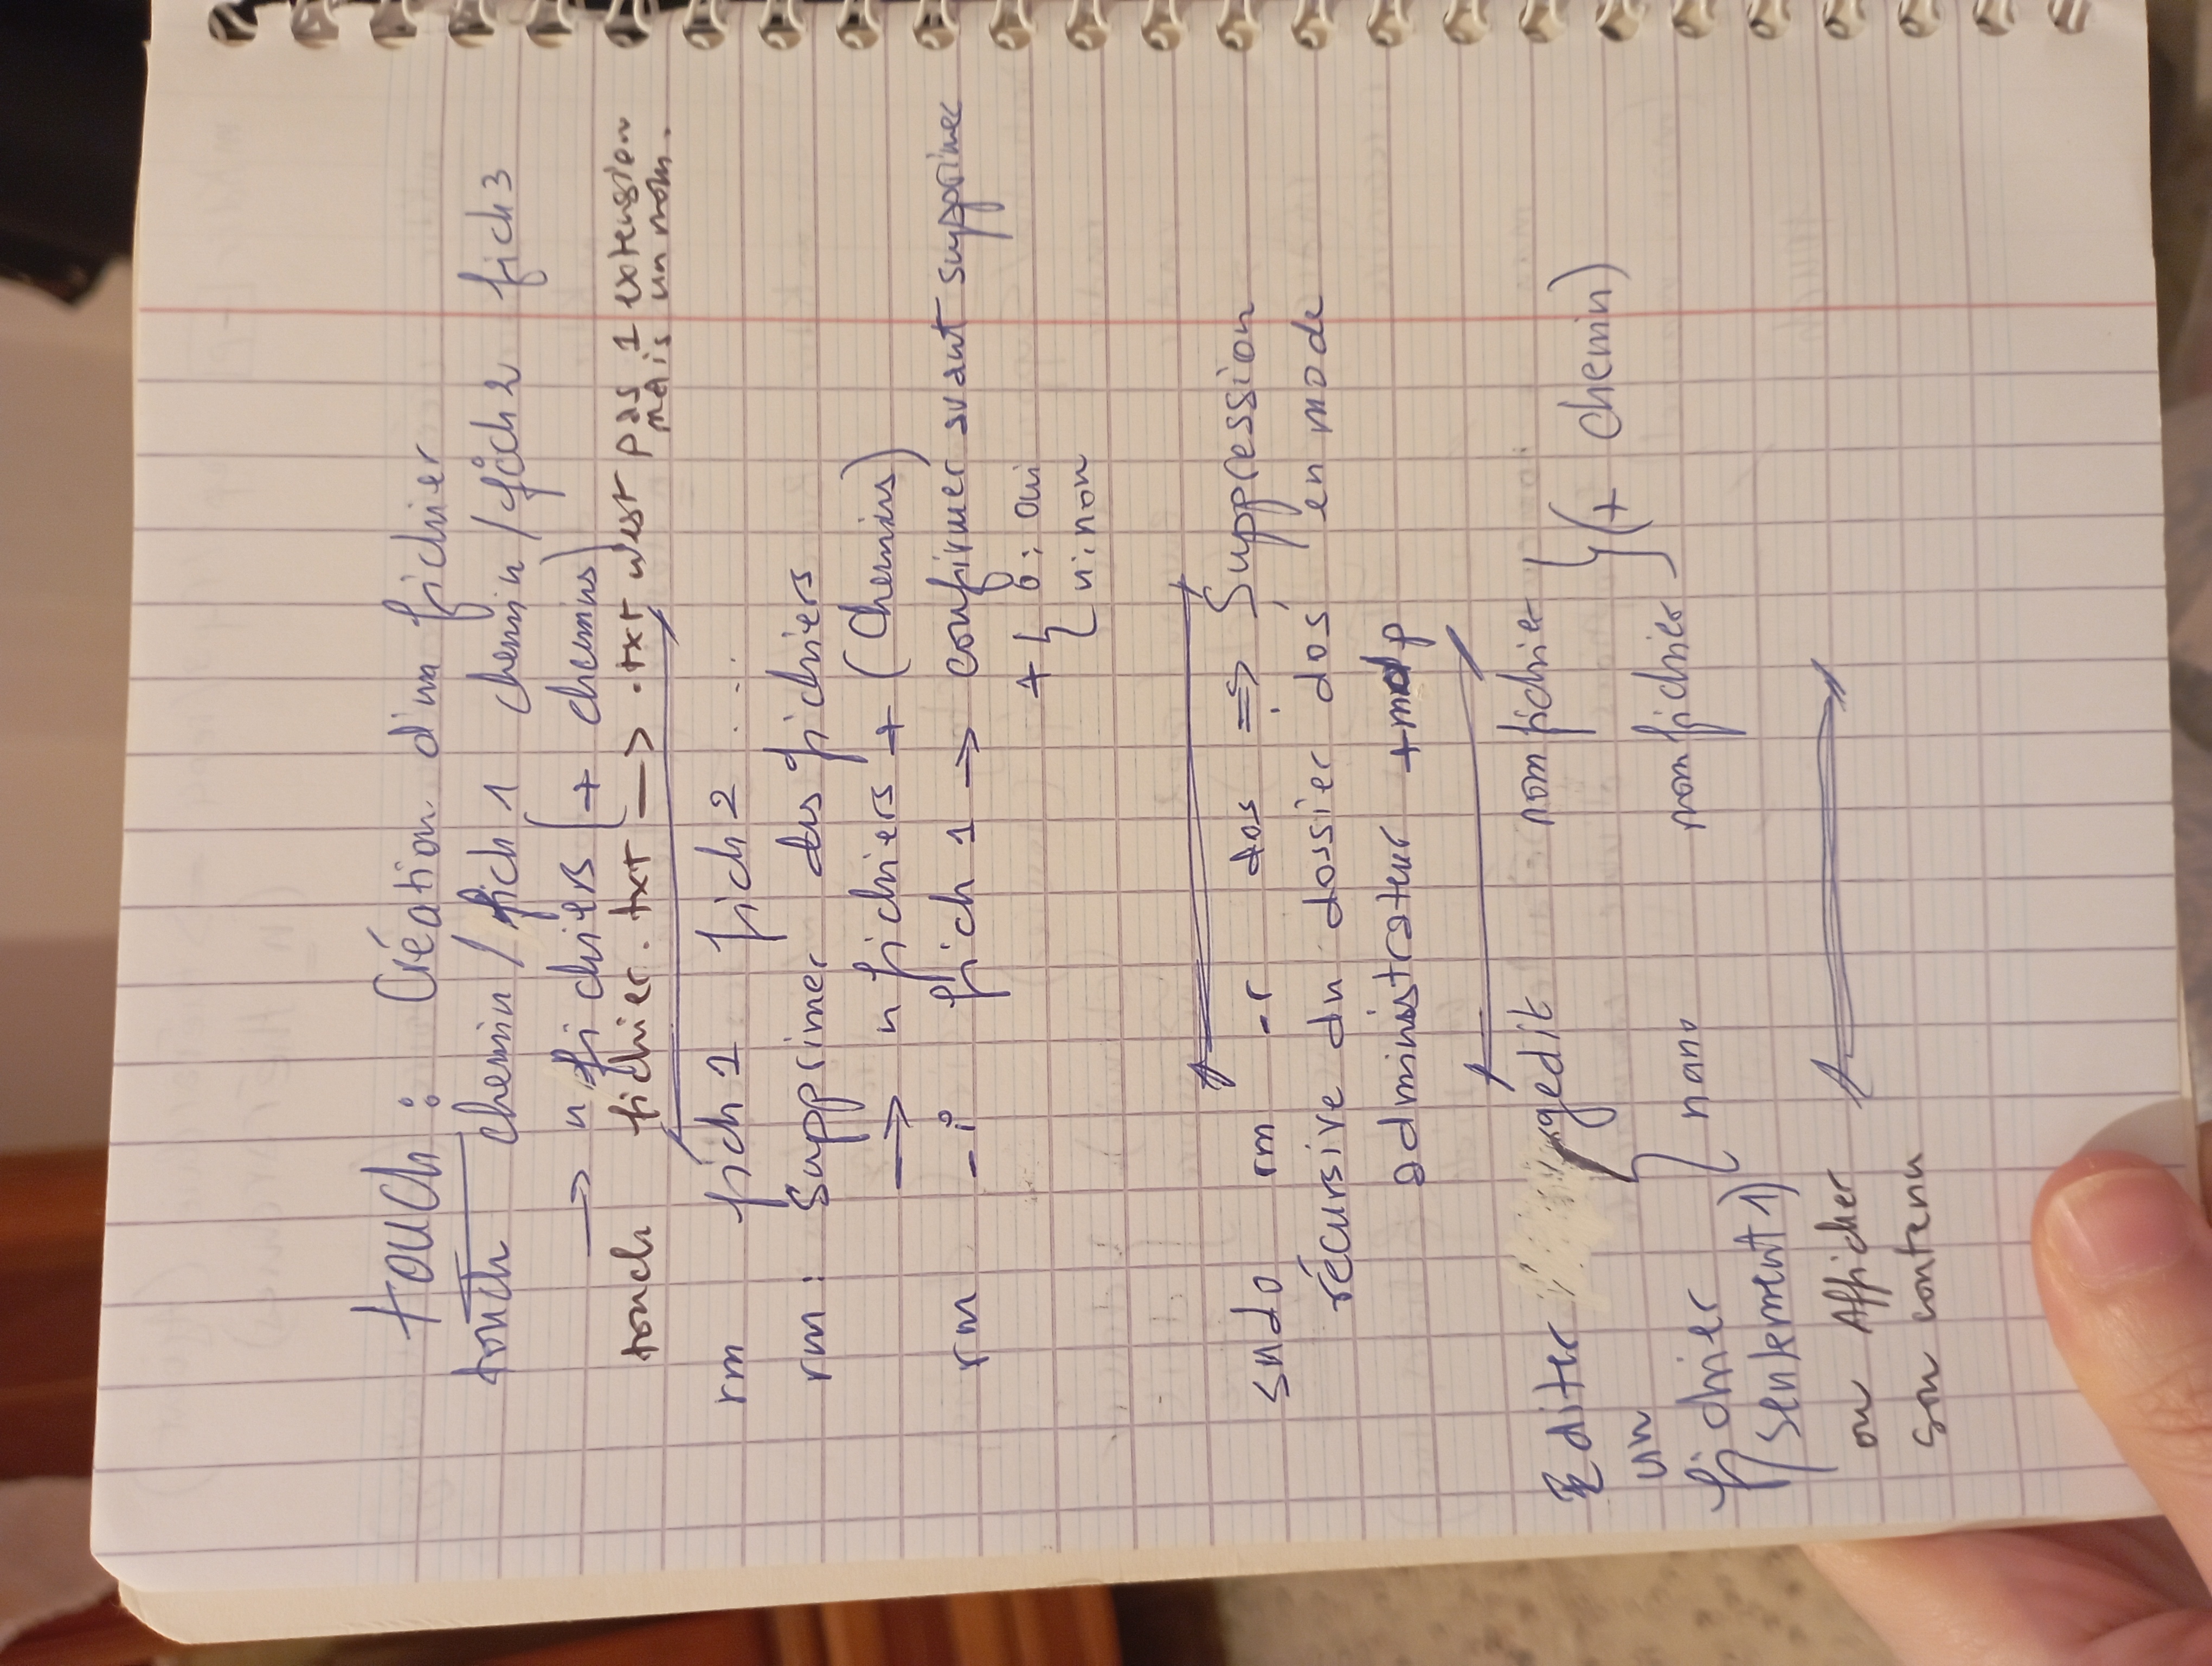 touch : Création d'un fichier
touch chemin/fich1 chemin/fich2 fich3
→ n fichiers (+ chemins)
touch fichier.txt → .txt n'est pas 1 extension
mais un nom.
rm fich1 fich2 ...
rm : Supprimer des fichiers
→ n fichiers + (Chemins)
rm -i fich1 → confirmer avant supprimer
+ { o : oui
n : non
sudo rm -r dos ⇒ Suppression
récursive du dossier dos en mode
administrateur + mdp
Editer { gedit nomfichier } (+ chemin)
un
fichier nano nomfichier
(seulement 1)
ou Afficher
son contenu